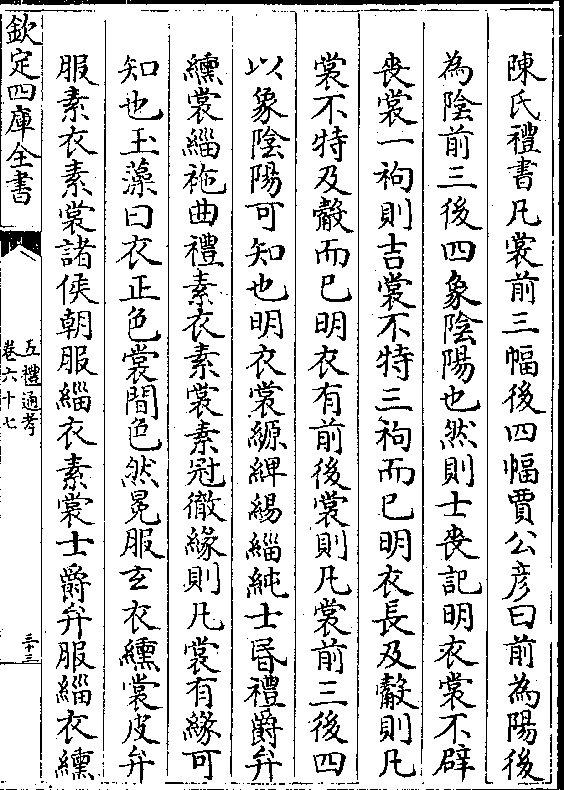 陳氏禮書凡裳前三幅後四幅賈公彦曰前為陽後
為陰前三後四象陰陽也然則士喪記明衣裳不辟
喪裳一袧則吉裳不特三袧而已明衣長及觳則凡
裳不特及觳而已明衣有前後裳則凡裳前三後四
以象陰陽可知也明衣裳縓綼緆緇純士昏禮爵弁
纁裳緇袘曲禮素衣素裳素冠徹緣則凡裳有緣可
知也玉藻曰衣正色裳間色然冕服玄衣纁裳皮弁
服素衣素裳諸侯朝服緇衣素裳士爵弁服緇衣纁
欽定四庫全書
五禮通考
卷六十七
三十三